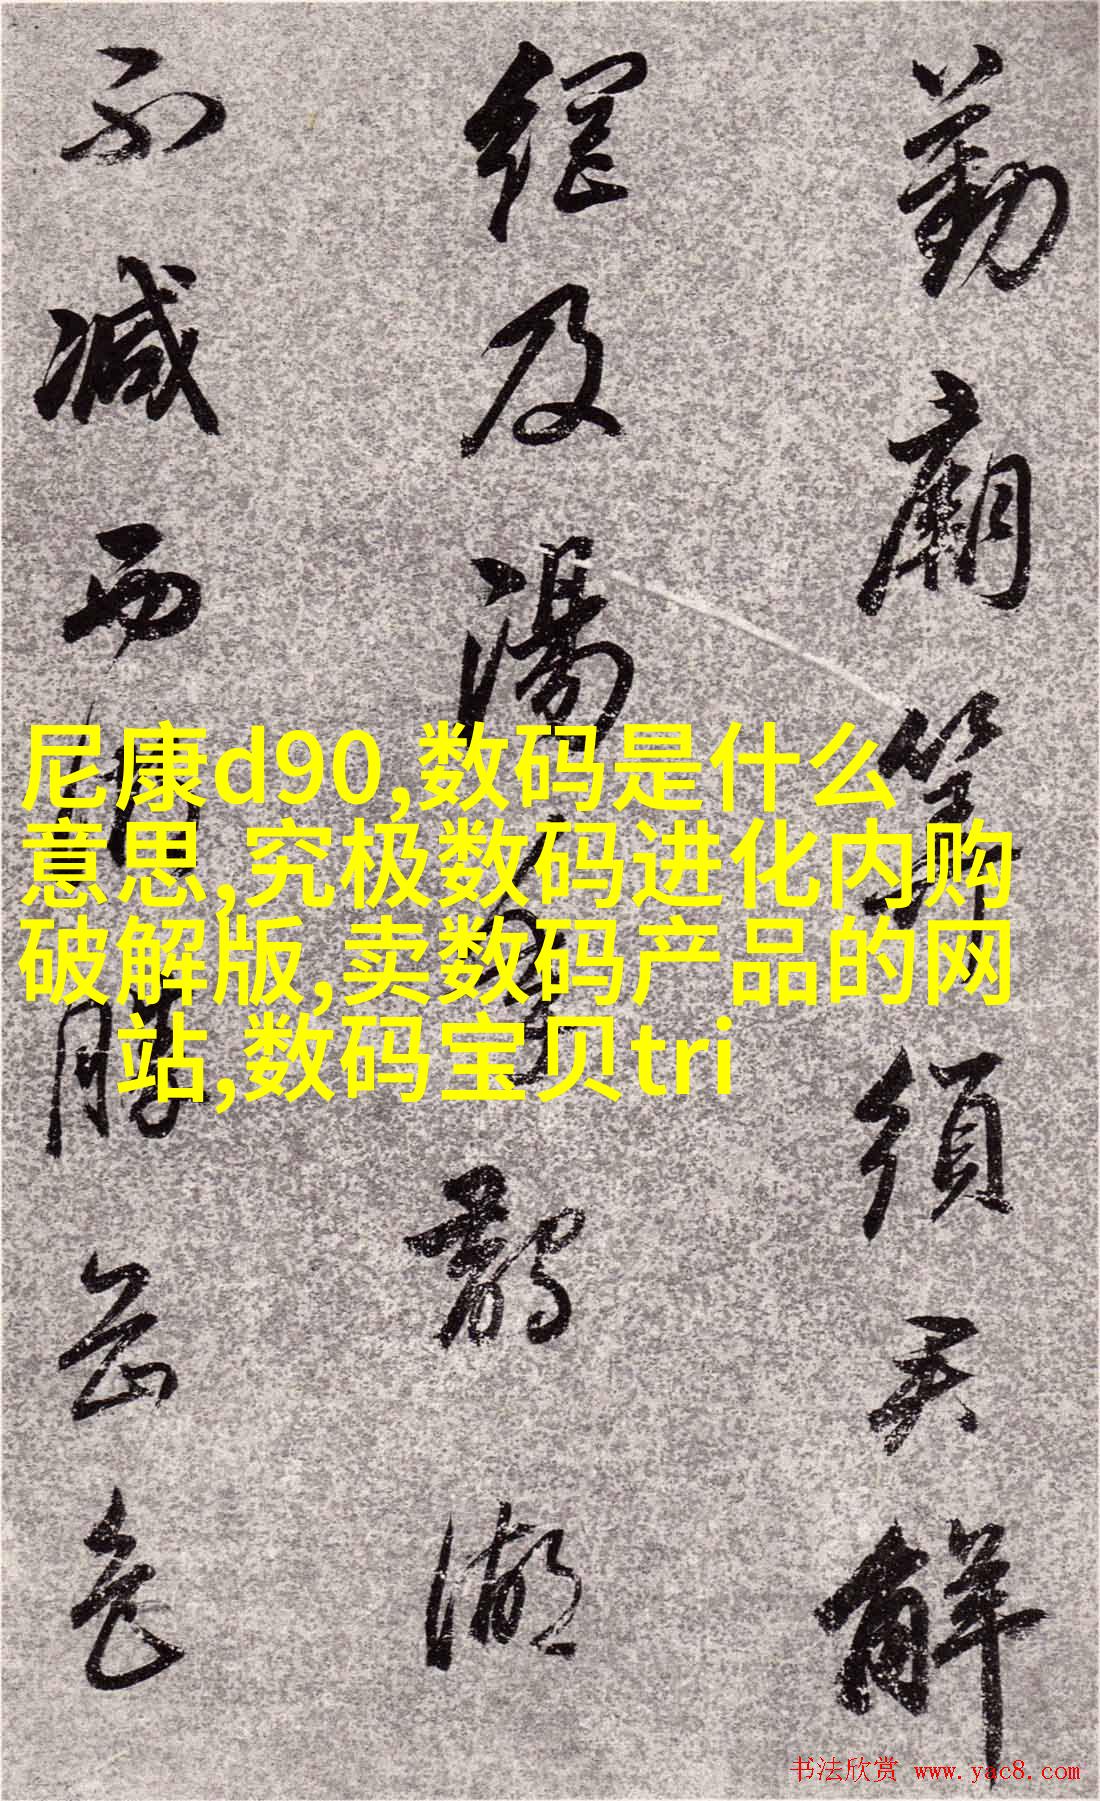 勤廟筭須君解
網及湯
湖
不減西
勝岳色
尼康d90,数码是什么
意思,究极数码进化内购
破解版,卖数码产品的网
站,数码宝贝tri
书法欣赏 www.yac8.com